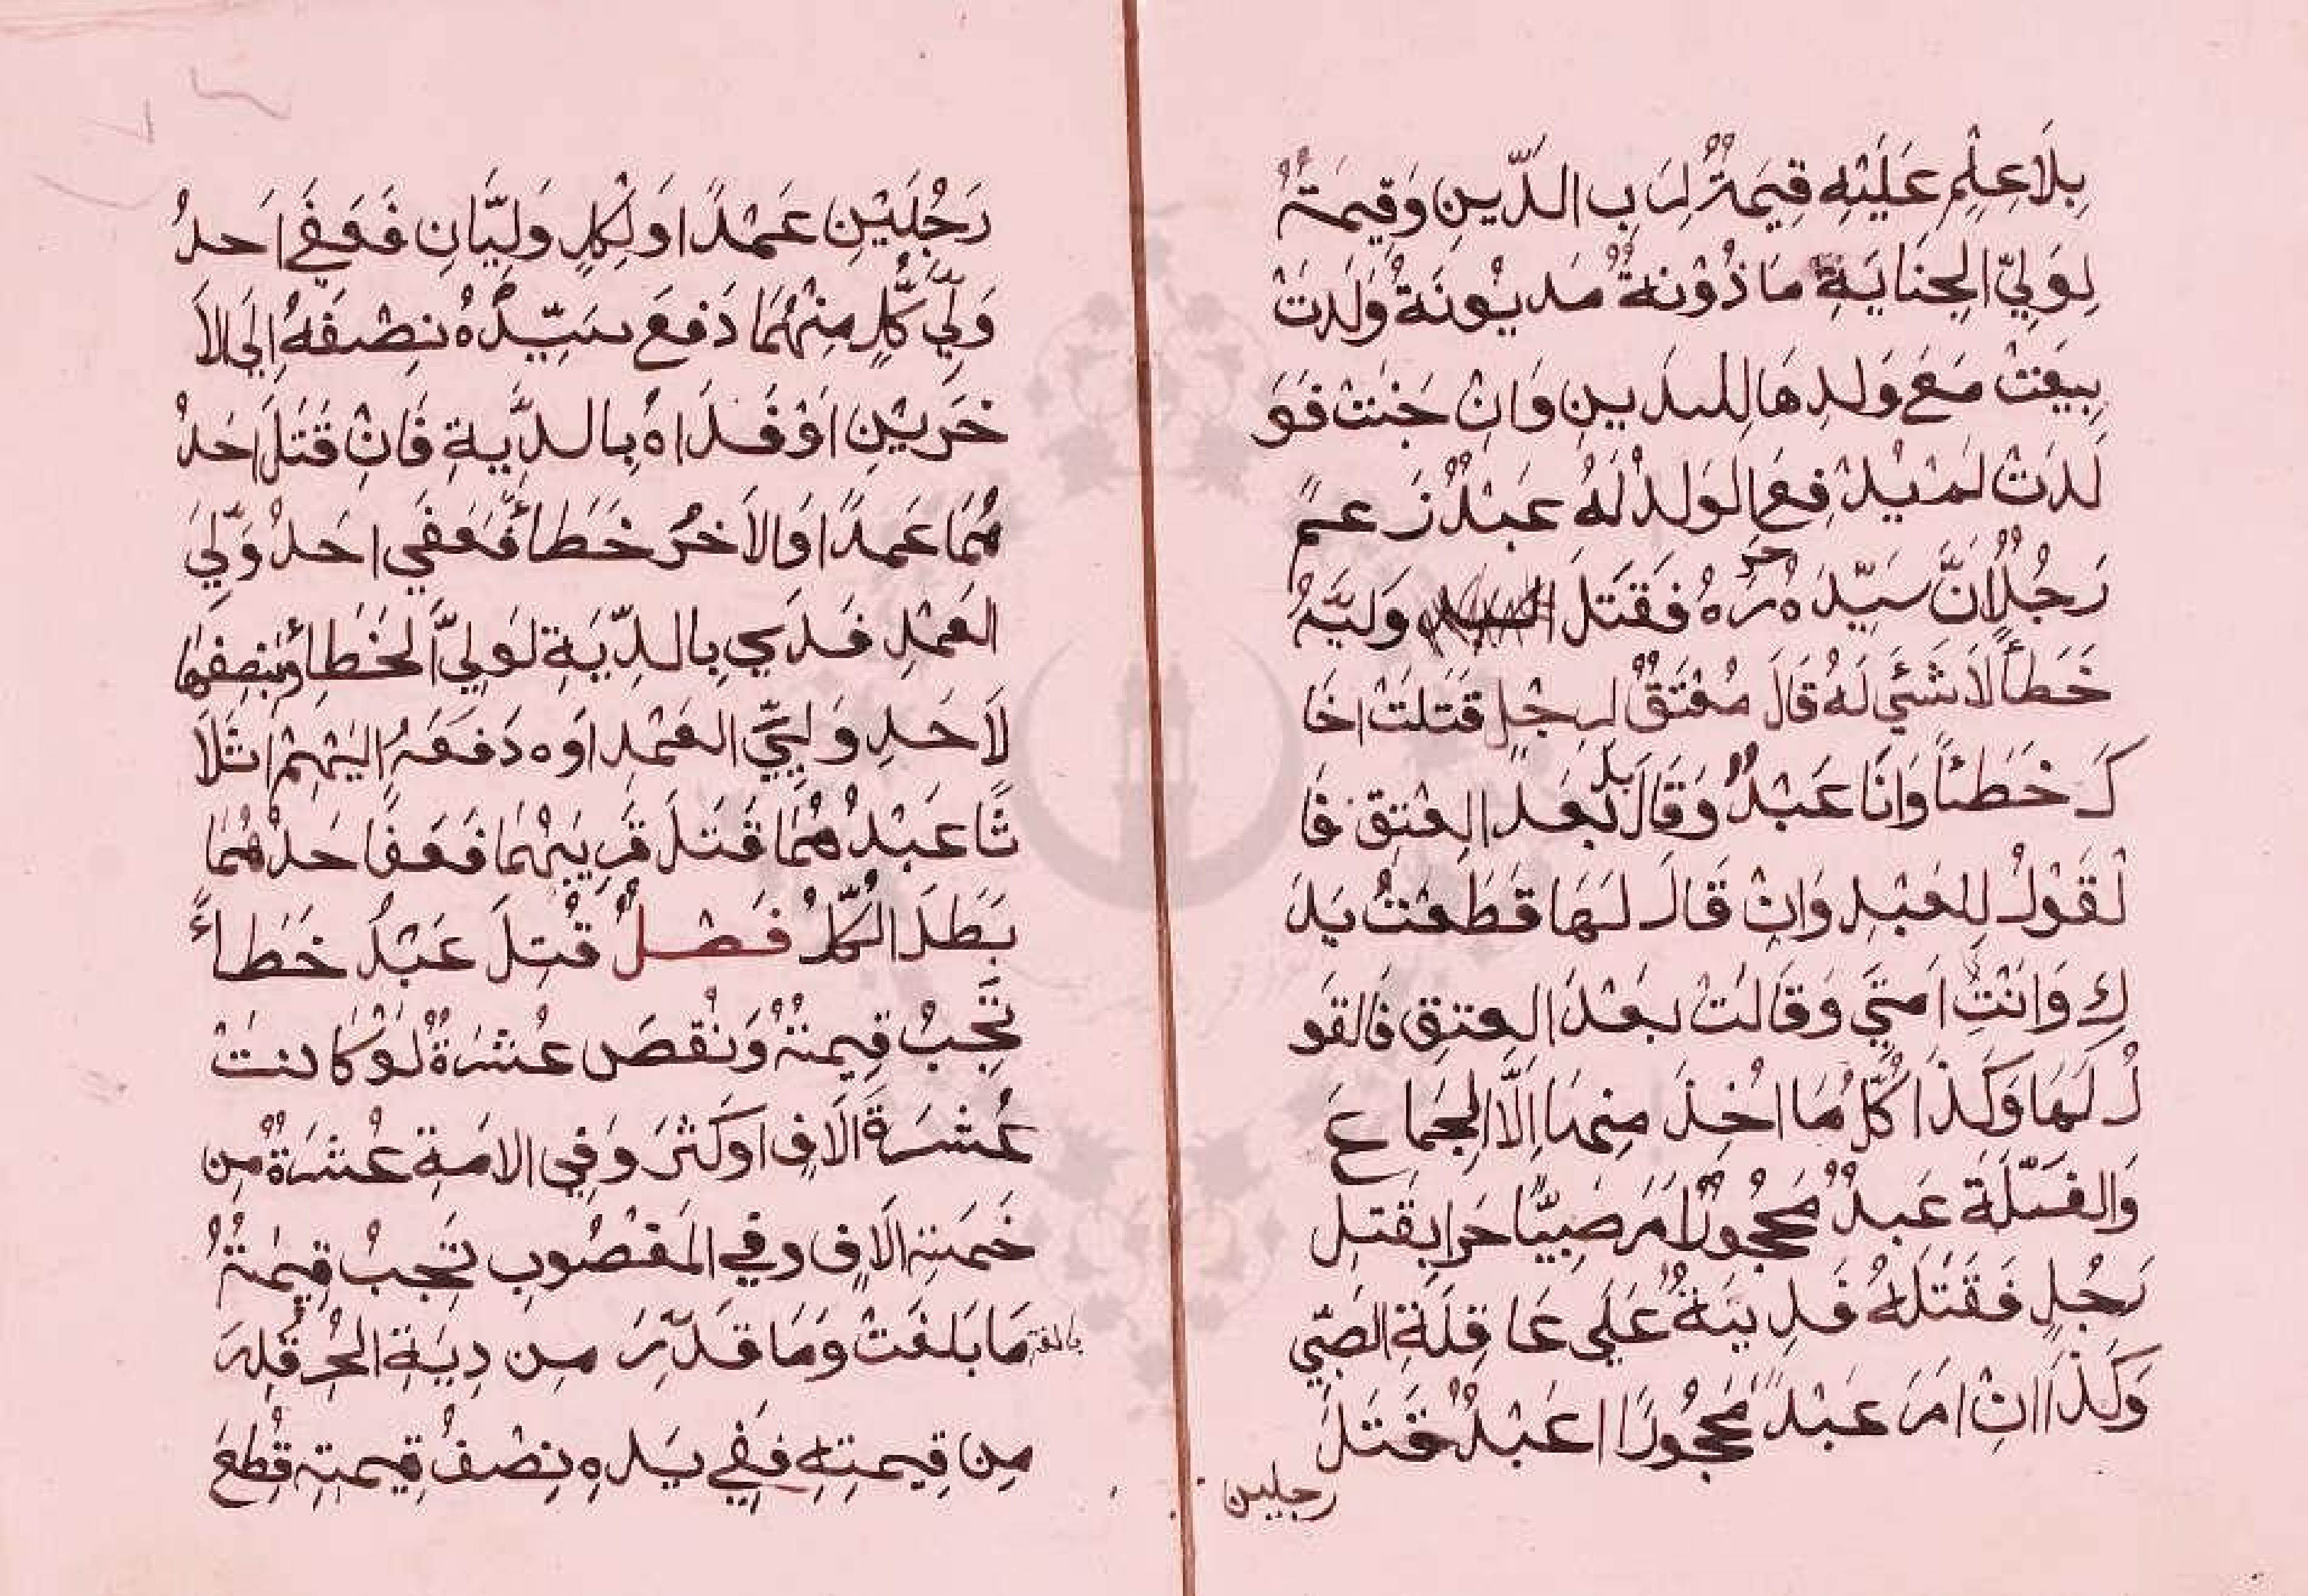 بِلَاعِلِمٍ عَلَيْهِ قِيمَةٌ لِرَبِ الدِّينِ وَقِيمَةٌ
لِوَلِيِّ الجِنَايَةِ مَاذُوْنةٌ مَديُونَةٌ وَلَدَتْ
بِيعَتْ مَعَ وَلدِهَا لِلدَينِ وَاِنْ جَنَتْ فَوَ
لَدَتْ لَمْ يُدْفِعِ الوَلدُ لَهُ عَبْدٌ زَعمَ
رَجُلٌ اِنَّ سَيِّدَهُ حَرَّرَهُ فَقَتَلَ وَلِيَّهُ
خَطَأً لَا شَئَي لَهُ قَالَ مُعْتَقٌ لِرجُلٍ قَتَلتُ اخَا
كَ خَطَئاً وَانَا عَبْدٌ وَقَالَ بل بَعْدَ العِتقِ فَا
لْقَوْلُ لِلعَبْدِ وَاِنْ قَالَ لَهَا قَطَعْتُ يَدَ
كِ وَانْتِ اَمَتَي وَقَالَتْ بَعْدَ العِتقِ فَالقَو
لُ لَهَا وَكَذَا كُلُّ مَا اُخِذَ مِنهَا اِلَّا الجِمَاعَ
وَالغَلّةَ عَبدٌ مَحجُورٌ اَمَرَ صَبِيًّا حَرا بِقَتِلِ
رَجُلٍ فَقَتَلَهُ فَدِيَتهُ عَلَي عَاقِلَةِ الصَبّي
وَكَذَا اِنْ اَمَرَ عَبْدً مَحجُورًا عَبْدٌ قَتَلَ
رجلين
رَجُلَيْنِ عَمْدًا وَلِكُلٍ وَلِيَّانِ فَعَفَي احَدُ
وَلِيّ كُلٍ مِنْهُمَا دَفعَ سَيِّدُهُ نِصْفَهُ اِلَي الاَ
خَرَيْنِ اَوْ فَدَاهُ بِالدِّيةِ فَاِنْ قَتَلَ اَحَدُ
هُمَا عَمدًا وَالاَخرُ خَطَأً فَعَفَي احَدُ وَلّيَ
العَمْدِ فَدَي بِالدِّيَةِ لَوَلِيِّ الخَطَأِ وَبِنِصْفِهَا
لاَحَدِ وَلِيّيِ العَمْدِ اَوه دَفعَهُ اِلَيْهِمْ اثَلَا
ثًا عَبْدُهُمَا قَتَلَ قَرِيبَهُمَا فَعَفَا احَدُهُمَا
بَطَلَ الكُلُّ فَصْلٌ قُتِلَ عَبْدٌ خَطَأً
تَجِبُ قِيمتهُ وَنُقصَ عُشرَةٌ لَوْ كَانتْ
عَشَرَةَ الَافٍ اَوكَثرَ وَفِي الامَةِ عُشَرَةٌ مِن
خَمسَةِ الَافٍ وفِي المَغْصُوبِ تَجِبُ قِيمَتُهُ
مَا بَلغَتْ وَمَا قَدّرَ مِن دِيَةِ الحُرِّ قُدِرَ بالغة
مِن قِيمتِهِ فَفِي يَدهِ نِصْفُ قِيمتِهِ قُطِعَ